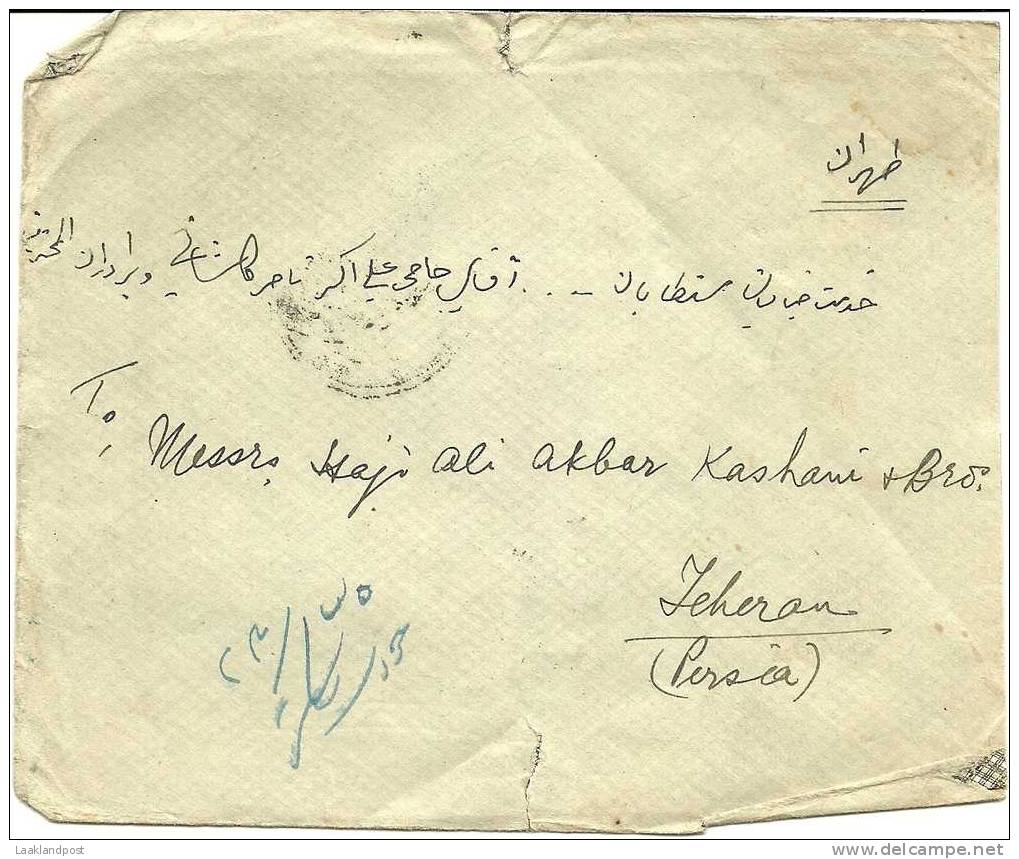 طهران
خدمت جنابان مستطابان ... آقای حاجی علی اکبر تاجر کاشانی و برادران المحترمین
To, Messrs, Haji Ali Akbar Kashani & Bro:
Teheran
(Persia)
Laaklandpost
www.delcampe.net